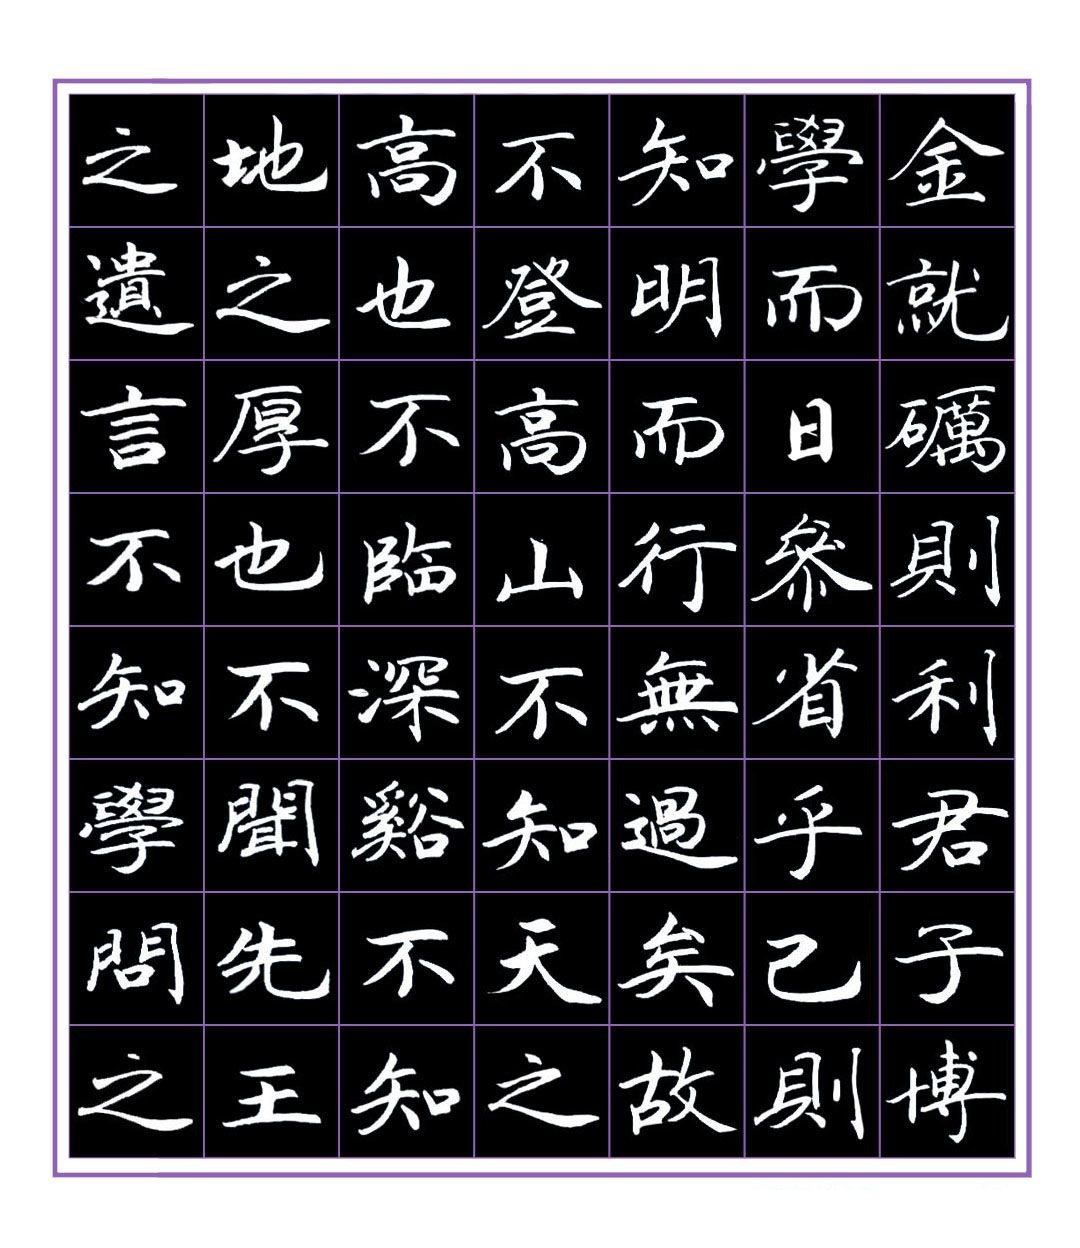 金就礪則利君子博
學而日參省乎己則
知明而行無過矣故
不登高山不知天之
高也不臨深谿不知
地之厚也不聞先王
之遺言不知學問之